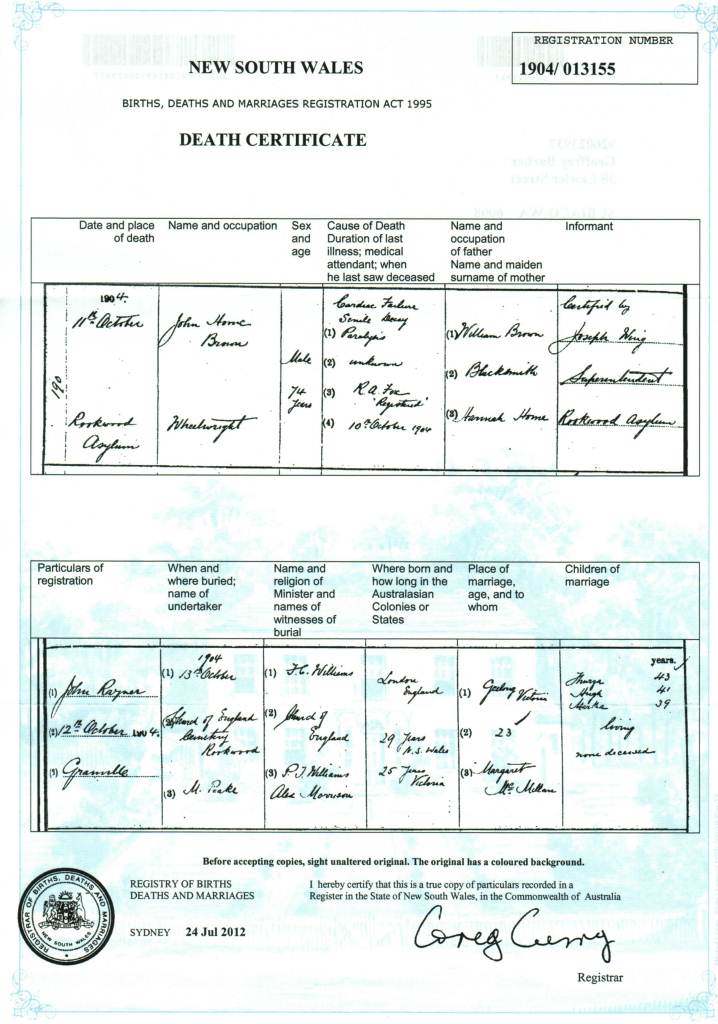 REGISTRATION NUMBER
1904/ 013155
NEW SOUTH WALES
BIRTHS, DEATHS AND MARRIAGES REGISTRATION ACT 1995
DEATH CERTIFICATE
Date and place of death
Name and occupation
Sex and age
Cause of Death
Duration of last illness; medical attendant; when he last saw deceased
Name and occupation of father
Name and maiden surname of mother
Informant
1904.
11th October
190
Rookwood
Asylum
John Horne
Brown
Wheelwright
Male
74
Years
Cardiac Failure
Senile Decay
(1) Paralysis
(2) unknown
(3) R.A. Fox
"Registered"
(4) 10th October 1904
(1) William Brown
(2) Blacksmith
(3) Hannah Horne
Certified by
Joseph Wing
Superintendent
Rookwood Asylum
Particulars of registration
When and where buried; name of undertaker
Name and religion of Minister and names of witnesses of burial
Where born and how long in the Australasian Colonies or States
Place of marriage, age, and to whom
Children of marriage
(1) John Rayner
(2) 12th October 1904.
(3) Granville
1904
(1) 13th October
(2) Church of England
Cemetery
Rookwood
(3) M. Peake
(1) F.C. Williams
(2) Church of
England
(3) P.J. Williams
Alex Morrison
London
England
29 Years
N.S. Wales
25 Years
Victoria
(1) Geelong Victoria
(2) 23
(3) Margaret
McMillan
years.
43
Hugh 41
39
living
none deceased
Before accepting copies, sight unaltered original. The original has a coloured background.
REGISTRY OF BIRTHS
DEATHS AND MARRIAGES
SYDNEY 24 Jul 2012
I hereby certify that this is a true copy of particulars recorded in a
Register in the State of New South Wales, in the Commonwealth of Australia
Greg Curry
Registrar
REGISTRAR OF BIRTHS, DEATHS AND MARRIAGES
NEW SOUTH WALES